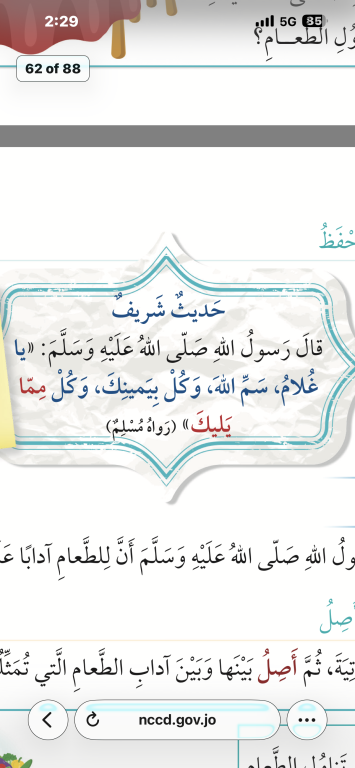 2:29
5G 85
ولِ الطَّعـــامِ؟
62 of 88
حْفَظُ
حَديثٌ شَريفٌ
قالَ رَسولُ اللهِ صَلّى اللهُ عَلَيْهِ وَسَلَّمَ: «يا
غُلامُ، سَمِّ اللهَ، وَكُلْ بِيَمينِكَ، وَكُلْ مِمّا
يَليكَ» (رَواهُ مُسْلِمٌ)
ولُ اللهِ صَلّى اللهُ عَلَيْهِ وَسَلَّمَ أَنَّ لِلطَّعامِ آدابًا
أَصِلُ
تِيَةَ، ثُمَّ أَصِلُ بَيْنَها وَبَيْنَ آدابِ الطَّعامِ الَّتي تُمَثِّلُ
nccd.gov.jo
تَناوُلِ الطَّعامِ